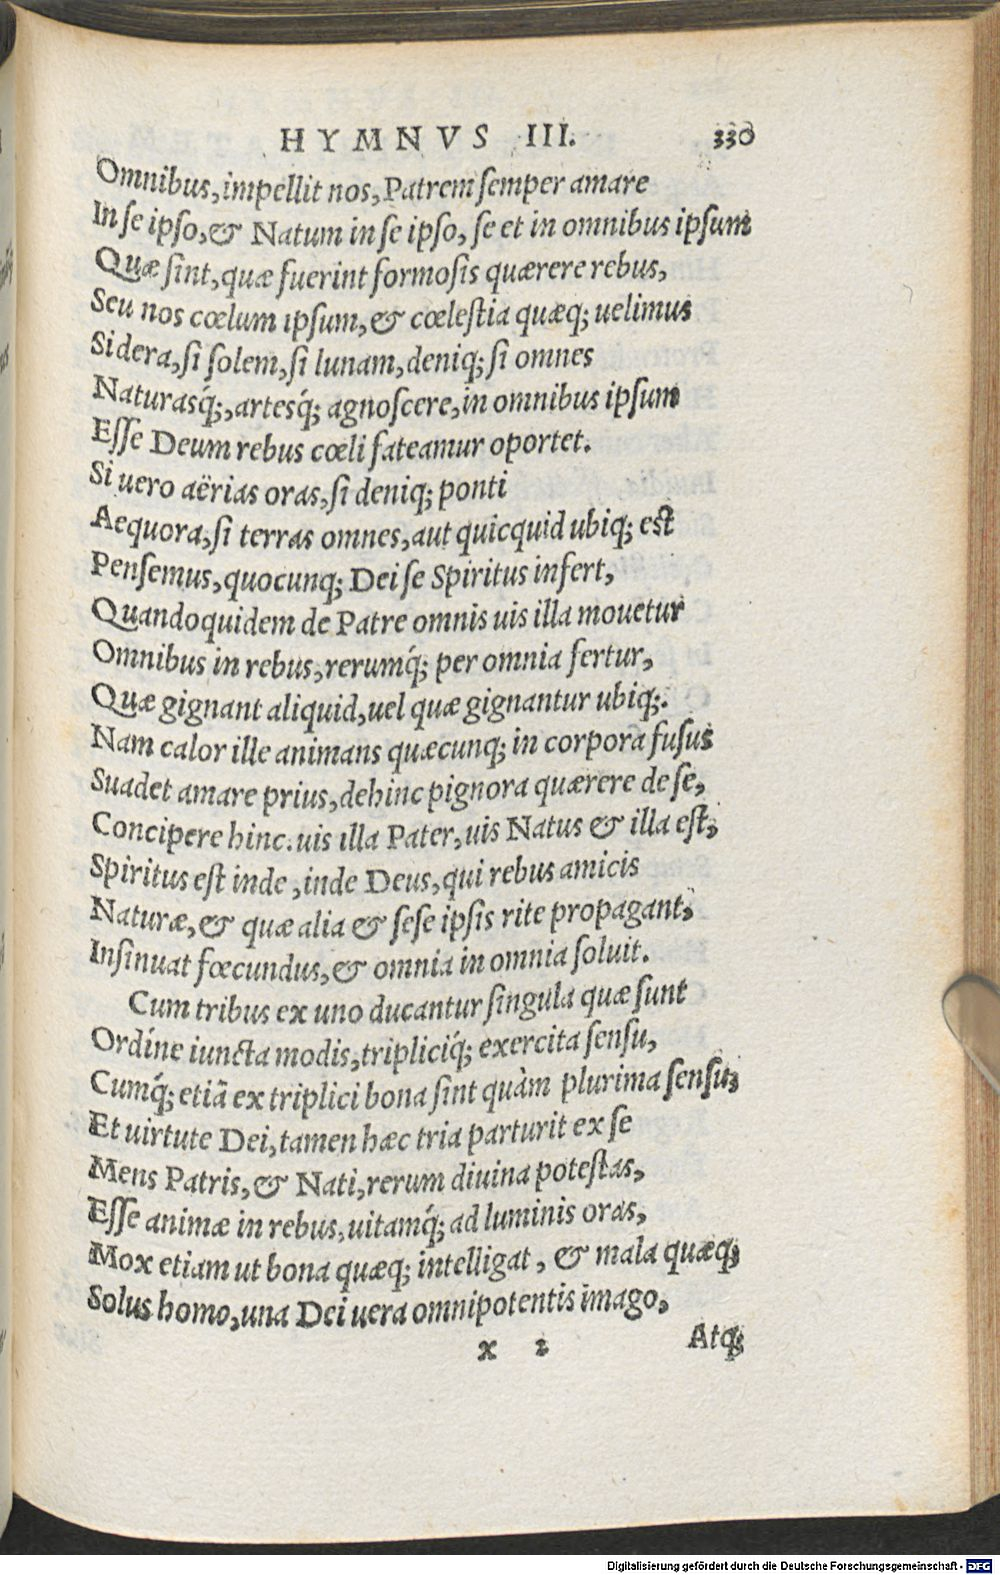 HYMNVS III. 330
Omnibus, impellit nos, Patrem semper amare
In se ipso, & Natum in se ipso, se et in omnibus ipsum
Quæ sint, quæ fuerint formosis quærere rebus,
Seu nos cœlum ipsum, & cœlestia quæq; uelimus
Sidera, si solem, si lunam, deniq; si omnes
Naturasq́;, artesq́; agnoscere, in omnibus ipsum
Esse Deum rebus cœli fateamur oportet.
Si uero aërias oras, si deniq; ponti
Aequora, si terras omnes, aut quicquid ubiq; est
Pensemus, quocunq; Dei se Spiritus infert,
Quandoquidem de Patre omnis uis illa mouetur
Omnibus in rebus, rerumq́; per omnia fertur,
Quæ gignant aliquid, uel quæ gignantur ubiq;.
Nam calor ille animans quæcunq; in corpora fusus
Suadet amare prius, dehinc pignora quærere de se,
Concipere hinc. uis illa Pater, uis Natus & illa est,
Spiritus est inde, inde Deus, qui rebus amicis
Naturæ, & quæ alia & sese ipsis rite propagant,
Insinuat fœcundus, & omnia in omnia soluit.
Cum tribus ex uno ducantur singula quæ sunt
Ordine iuncta modis, tripliciq́; exercita sensu,
Cumq́; etiã ex triplici bona sint quàm plurima sensu,
Et uirtute Dei, tamen hæc tria parturit ex se
Mens Patris, & Nati, rerum diuina potestas,
Esse animæ in rebus, uitamq́; ad luminis oras,
Mox etiam ut bona quæq; intelligat, & mala quæq;
Solus homo, una Dei uera omnipotentis imago,
x 2 Atq;
Digitalisierung gefördert durch die Deutsche Forschungsgemeinschaft - DFG